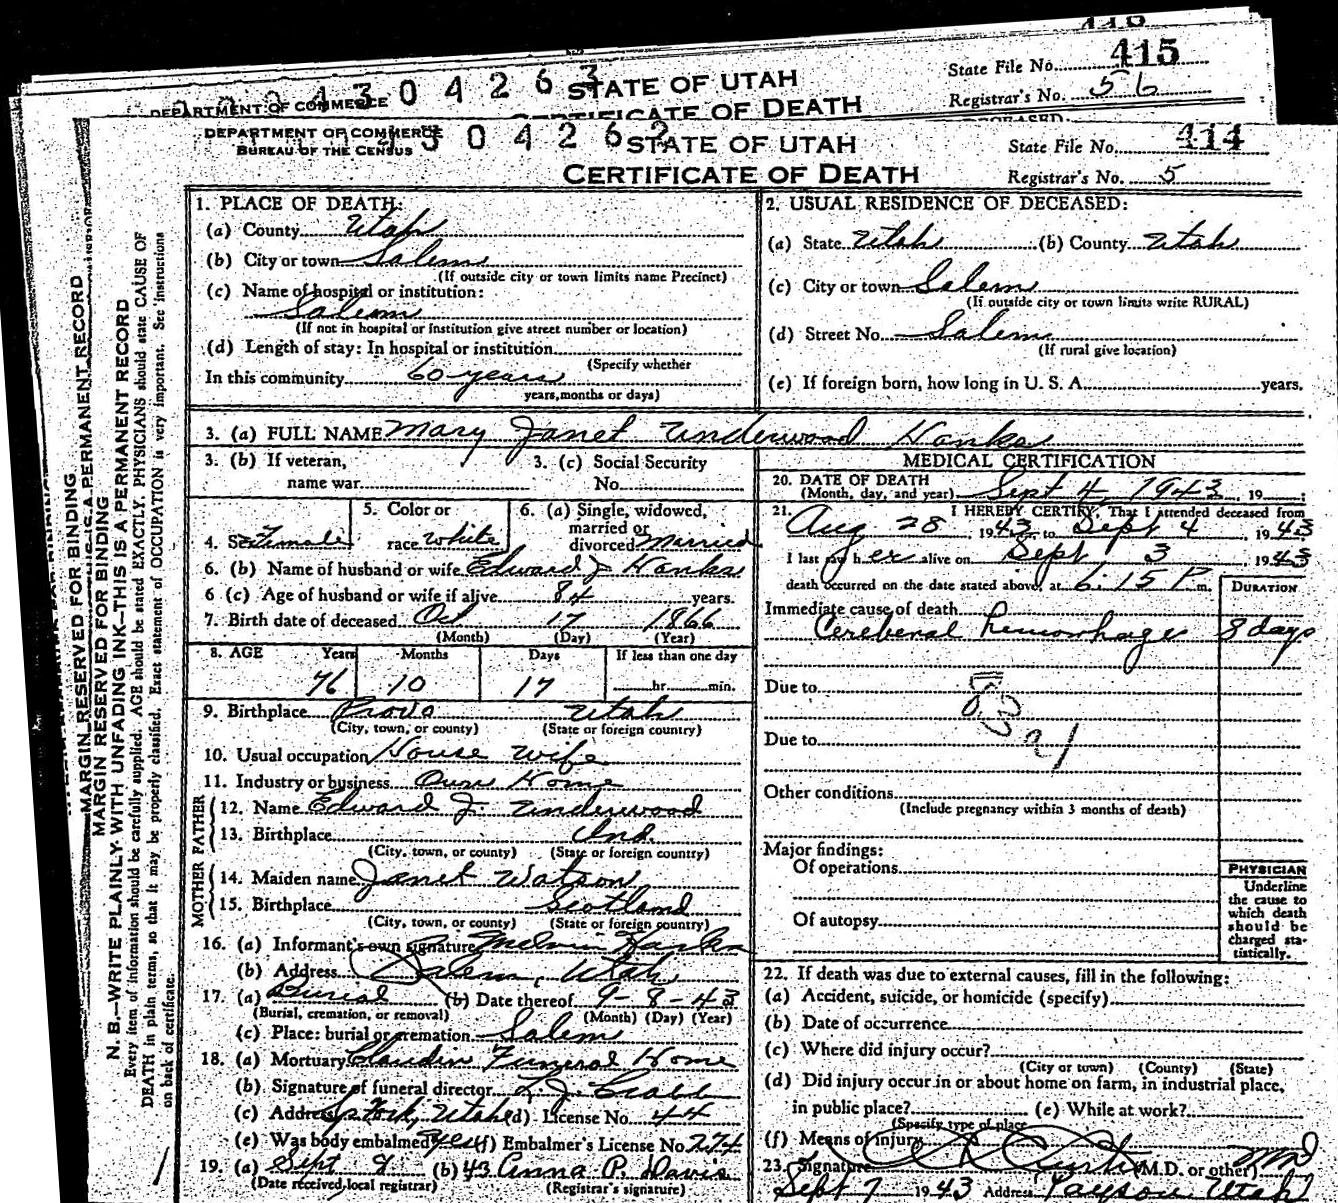 418
State File No. 415
2 0 4 3 0 4 2 6 3 STATE OF UTAH
DEPARTMENT OF COMMERCE
CERTIFICATE OF DEATH
Registrar's No. 56
DEPARTMENT OF COMMERCE
BUREAU OF THE CENSUS
3 0 4 2 6 2 STATE OF UTAH
CERTIFICATE OF DEATH
State File No. 414
Registrar's No. 5
MARGIN RESERVED FOR BINDING
THIS IS A PERMANENT RECORD
MARGIN RESERVED FOR BINDING
N. B.—WRITE PLAINLY WITH UNFADING INK—THIS IS A PERMANENT RECORD
Every item of information should be carefully supplied. AGE should be stated EXACTLY. PHYSICIANS should state CAUSE OF
DEATH in plain terms, so that it may be properly classified. Exact statement of OCCUPATION is very important. See Instructions
on back of certificate.
1. PLACE OF DEATH:
(a) County Utah
(b) City or town Salem
(If outside city or town limits name Precinct)
(c) Name of hospital or institution:
Salem
(If not in hospital or institution give street number or location)
(d) Length of stay: In hospital or institution
(Specify whether
In this community 60 years
years, months or days)
2. USUAL RESIDENCE OF DECEASED:
(a) State Utah (b) County Utah
(c) City or town Salem
(If outside city or town limits write RURAL)
(d) Street No. Salem
(If rural give location)
(e) If foreign born, how long in U. S. A. years.
3. (a) FULL NAME Mary Janet Underwood Hanks
3. (b) If veteran, name war
3. (c) Social Security No.
4. Sex Female
5. Color or race White
6. (a) Single, widowed, married or divorced Married
6. (b) Name of husband or wife Edward J Hanks
6 (c) Age of husband or wife if alive 84 years.
7. Birth date of deceased Oct 17 1866
(Month) (Day) (Year)
8. AGE Years Months Days If less than one day
76 10 17 hr. min.
9. Birthplace Provo Utah
(City, town, or county) (State or foreign country)
10. Usual occupation House wife
11. Industry or business Own Home
FATHER
12. Name Edward J. Underwood
13. Birthplace Ind.
(City, town, or county) (State or foreign country)
MOTHER
14. Maiden name Janet Watson
15. Birthplace Scotland
(City, town, or county) (State or foreign country)
16. (a) Informant's own signature Melvin Hanks
(b) Address Salem, Utah
17. (a) Burial (b) Date thereof 9-8-43
(Burial, cremation, or removal) (Month) (Day) (Year)
(c) Place: burial or cremation Salem
18. (a) Mortuary Claudin Funeral Home
(b) Signature of funeral director
(c) Address Utah (d) License No. 44
(e) Was body embalmed? yes (f) Embalmer's License No. 274
19. (a) Sept 9 (b) 43 Anna P. Davis
(Date received, local registrar) (Registrar's signature)
MEDICAL CERTIFICATION
20. DATE OF DEATH
(Month, day, and year) Sept 4, 1943, 19
21. I HEREBY CERTIFY, That I attended deceased from
Aug 28, 1943, to Sept 4 1943
I last saw her alive on Sept 3 1943
death occurred on the date stated above, at 6:15 P. m.
DURATION
Immediate cause of death
Cerebral hemorhage 8 days
Due to
83
Due to
21
Other conditions
(Include pregnancy within 3 months of death)
Major findings:
Of operations
Of autopsy
PHYSICIAN
Underline
the cause to
which death
should be
charged sta-
tistically.
22. If death was due to external causes, fill in the following:
(a) Accident, suicide, or homicide (specify)
(b) Date of occurrence
(c) Where did injury occur?
(City or town) (County) (State)
(d) Did injury occur in or about home on farm, in industrial place,
in public place? (e) While at work?
(Specify type of place
(f) Means of injury
23. Signature Curtis (M.D. or other) MD
Sept 7 1943 Address Payson Utah